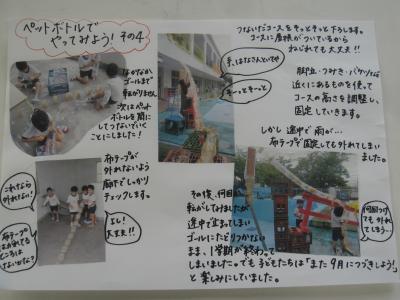 ペットボトルで
やってみよう! その4
なかなか
ゴールまで
転がりません
次はペット
ボトルを筒に
してつないでいく
ことにしました!
つないだコースをそっとそっと下ろします。
コースに屋根がついているから
ねじれても大丈夫!!
手、はなさんといてや
そーっとそーっと
脚立・つみき・バケツなど
近くにあるものを使って
コースの高さを調整し、
固定していきます。
しかし途中で雨が…
布テープで固定しても外れてしまい
ました。
布テープが
外れないよう
腕でしっかり
チェックします。
これなら
外れない!
よし!
大丈夫!!
布テープの
はがれてる
ところは
ないかな?
その後、何回か
転がしてみましたが
途中で止まってしまい
ゴールにたどりつかない
まま、1学期が終わって
しまいました。でも子どもたちは「また9月につづきしよう!」
と楽しみにしていました。
何回つけ
ても外れて
しまう…